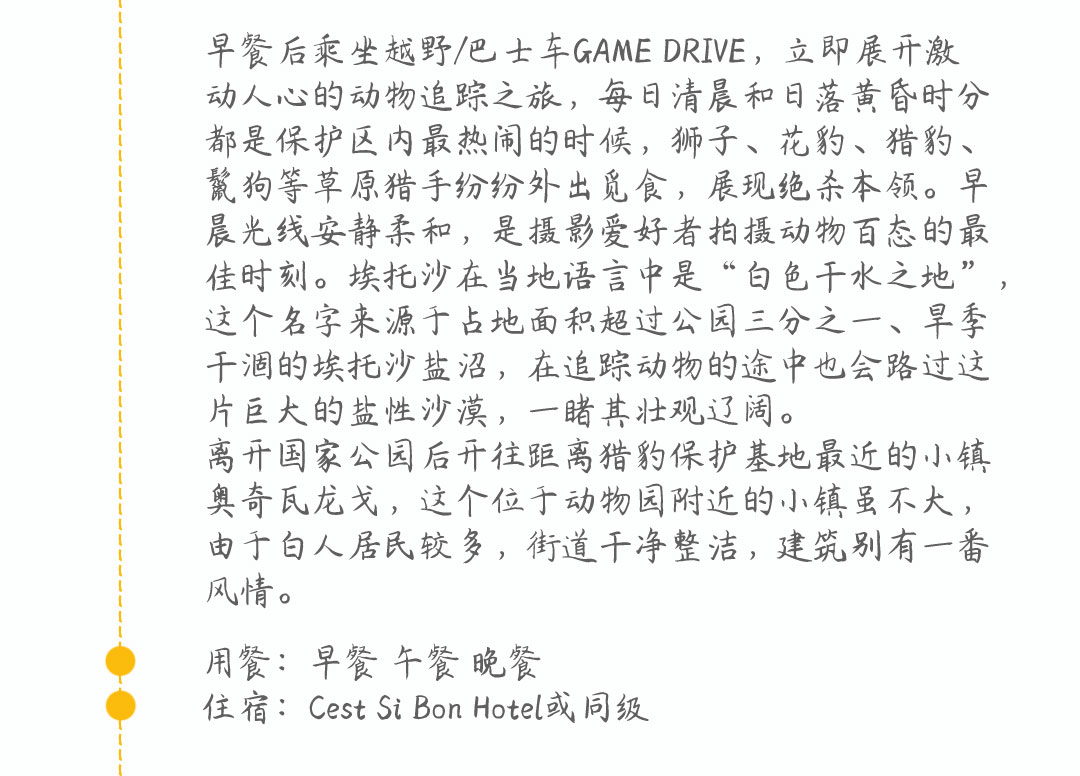 早餐后乘坐越野/巴士车GAME DRIVE，立即展开激
动人心的动物追踪之旅，每日清晨和日落黄昏时分
都是保护区内最热闹的时候，狮子、花豹、猎豹、
鬣狗等草原猎手纷纷外出觅食，展现绝杀本领。早
晨光线安静柔和，是摄影爱好者拍摄动物百态的最
佳时刻。埃托沙在当地语言中是“白色干水之地”，
这个名字来源于占地面积超过公园三分之一、旱季
干涸的埃托沙盐沼，在追踪动物的途中也会路过这
片巨大的盐性沙漠，一睹其壮观辽阔。
离开国家公园后开往距离猎豹保护基地最近的小镇
奥奇瓦龙戈，这个位于动物园附近的小镇虽不大，
由于白人居民较多，街道干净整洁，建筑别有一番
风情。
用餐：早餐 午餐 晚餐
住宿：Cest Si Bon Hotel或同级